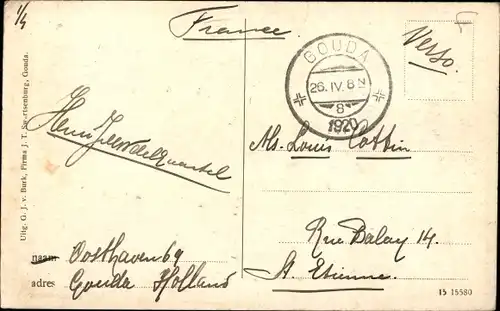 1/4
France
Verso.
GOUDA
26.IV.8
8
1920
Ms. Louis Cottin
Rue Balay 14.
St. Etienne.
naam Oosthaven 69
adres Gouda Holland
Uitg. G. J. v. Burk, Firma J. T. Swartsenburg, Gouda.
15 15580